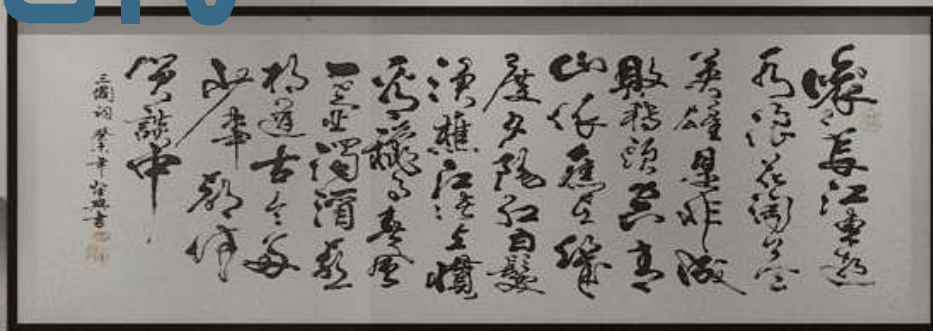 滚滚長江東逝
水浪花淘盡
英雄是非成
敗轉頭空青
山依舊在幾
度夕陽紅白髮
漁樵江渚上慣
看秋月春風
一壺濁酒喜
相逢古今多
少事都付
笑談中
三國詞 年 書